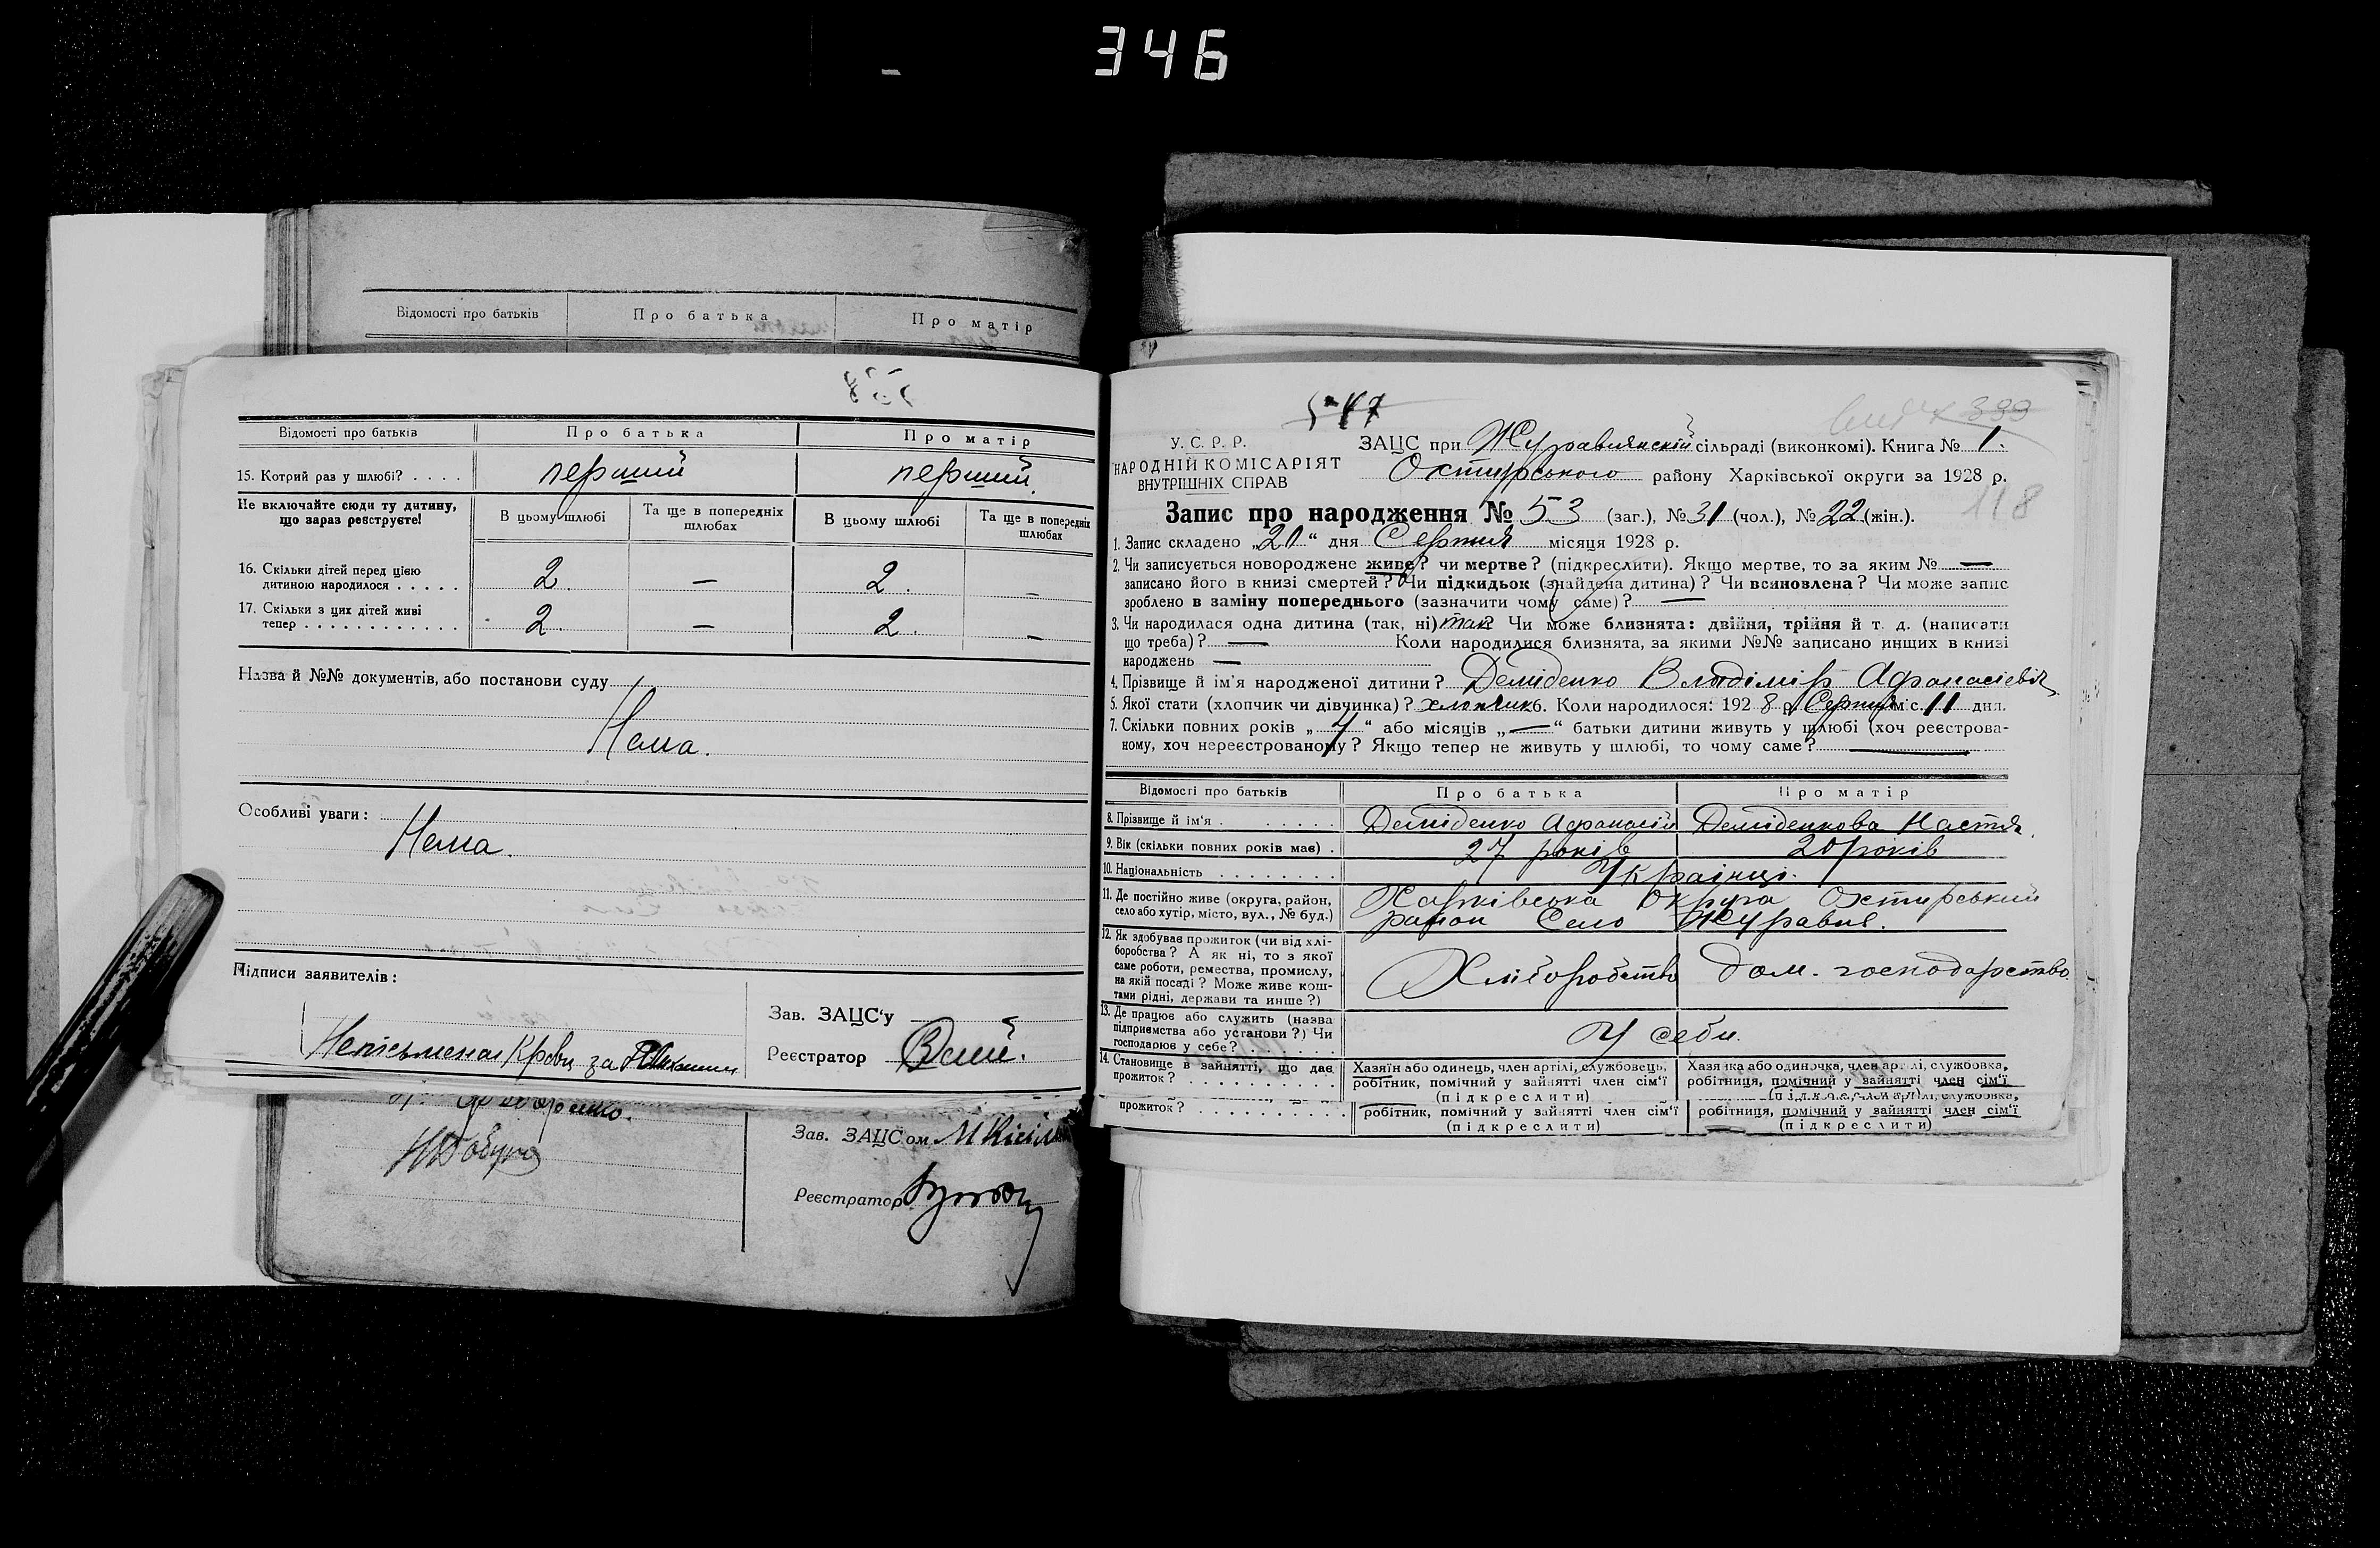 346
Відомості про батьків Про батька Про матір
Відомості про батьків Про батька Про матір
15. Котрий раз у шлюбі? . . . . перший перший
Не включайте сюди ту дитину, що зараз реєструєте!
В цьому шлюбі Та ще в попередніх шлюбах В цьому шлюбі Та ще в попередніх шлюбах
16. Скільки дітей перед цією
дитиною народилося . . . . . 2. — 2. —
17. Скільки з цих дітей живі
тепер . . . . . . . . . . . . 2. — 2. —
Назва й №№ документів, або постанови суду
Нема.
Особливі уваги:
Нема.
Підписи заявителів:
Зав. ЗАЦС'у
за
Реєстратор
Зав. ЗАЦСом
Реєстратор
547
399
У. С. Р. Р.
НАРОДНІЙ КОМІСАРІЯТ
ВНУТРІШНІХ СПРАВ
ЗАЦС при Журавлянскій сільраді (виконкомі). Книга № 1.
Охтирського району Харківської округи за 1928 р.
118
Запис про народження № 53 (заг.), № 31 (чол.), № 22 (жін.).
1. Запис складено „20“ дня Серпня місяця 1928 р.
2. Чи записується новороджене живе? чи мертве? (підкреслити). Якщо мертве, то за яким № —
записано його в книзі смертей? Чи підкидьок (знайдена дитина)? Чи всиновлена? Чи може запис
зроблено в заміну попереднього (зазначити чому саме)? —
3. Чи народилася одна дитина (так, ні) так? Чи може близнята: двійня, трійня й т. д. (написати
що треба)? — Коли народилися близнята, за якими №№ записано инших в книзі
народжень —
4. Прізвище й ім'я народженої дитини? Демiденко Владiмiр Афанасiевiч
5. Якої стати (хлопчик чи дівчинка)? хлопчик 6. Коли народилося: 1928 р. Серпня міс. 11 дня.
7. Скільки повних років „4“ або місяців „—“ батьки дитини живуть у шлюбі (хоч реєстрова-
ному, хоч нереєстрованому? Якщо тепер не живуть у шлюбі, то чому саме? —
Відомості про батьків Про батька Про матір
8. Прізвище й ім'я . . . . . . Демiденко Афанасiй Демiденкова Настя.
9. Вік (скільки повних років має) . 27 років 20 років
10. Національність . . . . . . . . Українці.
11. Де постійно живе (округа, район,
село або хутір, місто, вул., № буд.)
Харківська Округа Охтирський
район Село Журавне.
12. Як здобуває прожиток (чи від хлі-
боробства? А як ні, то з якої
саме роботи, ремества, промислу,
на якій посаді? Може живе кош-
тами рідні, держави та инше?)
Хліборобство дом. господарство.
13. Де працює або служить (назва
підприємства або установи?) Чи
господарює у себе? . . . . . .
У себе.
14. Становище в зайнятті, що дає
прожиток? . . . . . . . . . . .
Хазяїн або одинець, член артілі, службовець,
робітник, помічний у зайнятті член сім'ї
(підкреслити)
Хазяйка або одиначка, член артілі, службовка,
робітниця, помічний у зайнятті член сім'ї
прожиток? . . . . . . . . . . .
робітник, помічний у зайнятті член сім'ї
(підкреслити)
робітниця, помічний у зайнятті член сім'ї
(підкреслити)